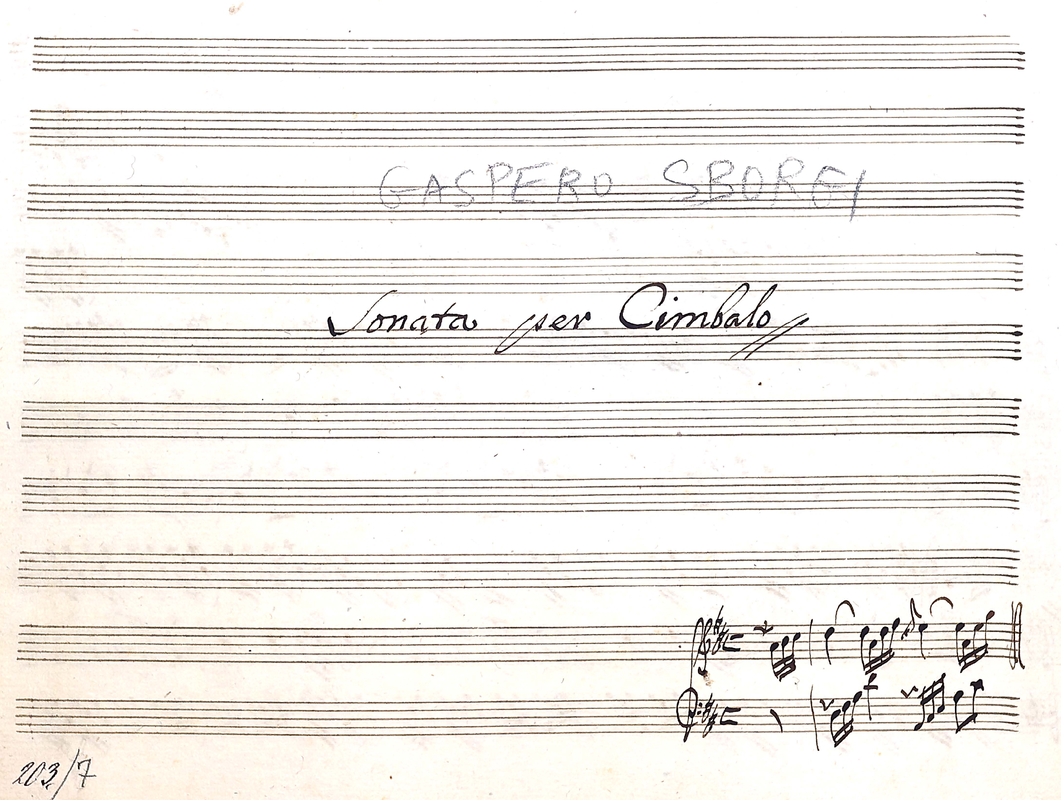 GASPERO SBORGI
Sonata per Cimbalo
203/7